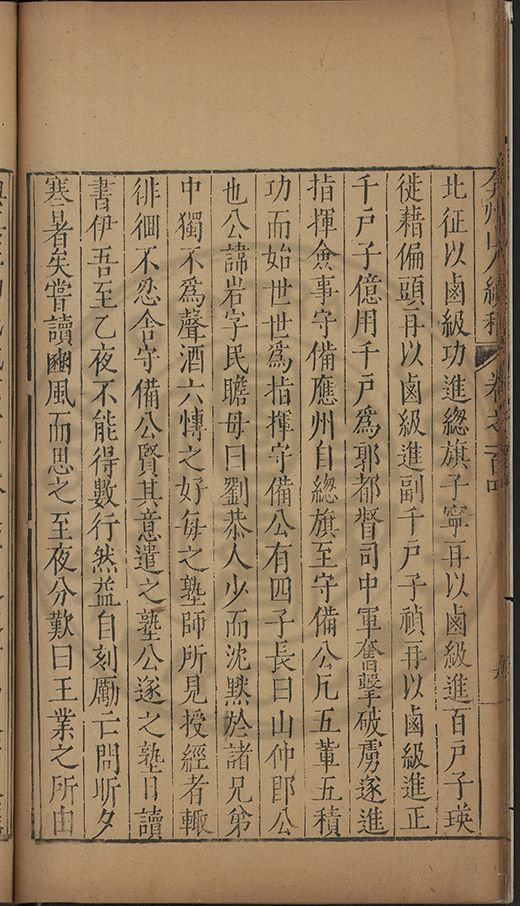 弇州山人續稿 卷之一百
北征以鹵級功進緫旗子寧再以鹵級進百戶子瑛
徙藉偏頭再以鹵級進副千戶子禎再以鹵級進正
千戶子億用千戶爲郭都督司中軍奮擊破虜遂進
指揮僉事守備應州自緫旗至守備公凡五輩五積
功而始世世爲指揮守備公有四子長曰山仲卽公
也公諱岩字民瞻母曰劉恭人少而沈黙於諸兄弟
中獨不爲聲酒六慱之好每之塾師所見授經者輙
徘徊不忍舍守備公賢其意遣之塾公遂之塾日讀
書伊吾至乙夜不能得數行然益自刻厲亡問昕夕
寒暑矣嘗讀豳風而思之至夜分歎曰王業之所由